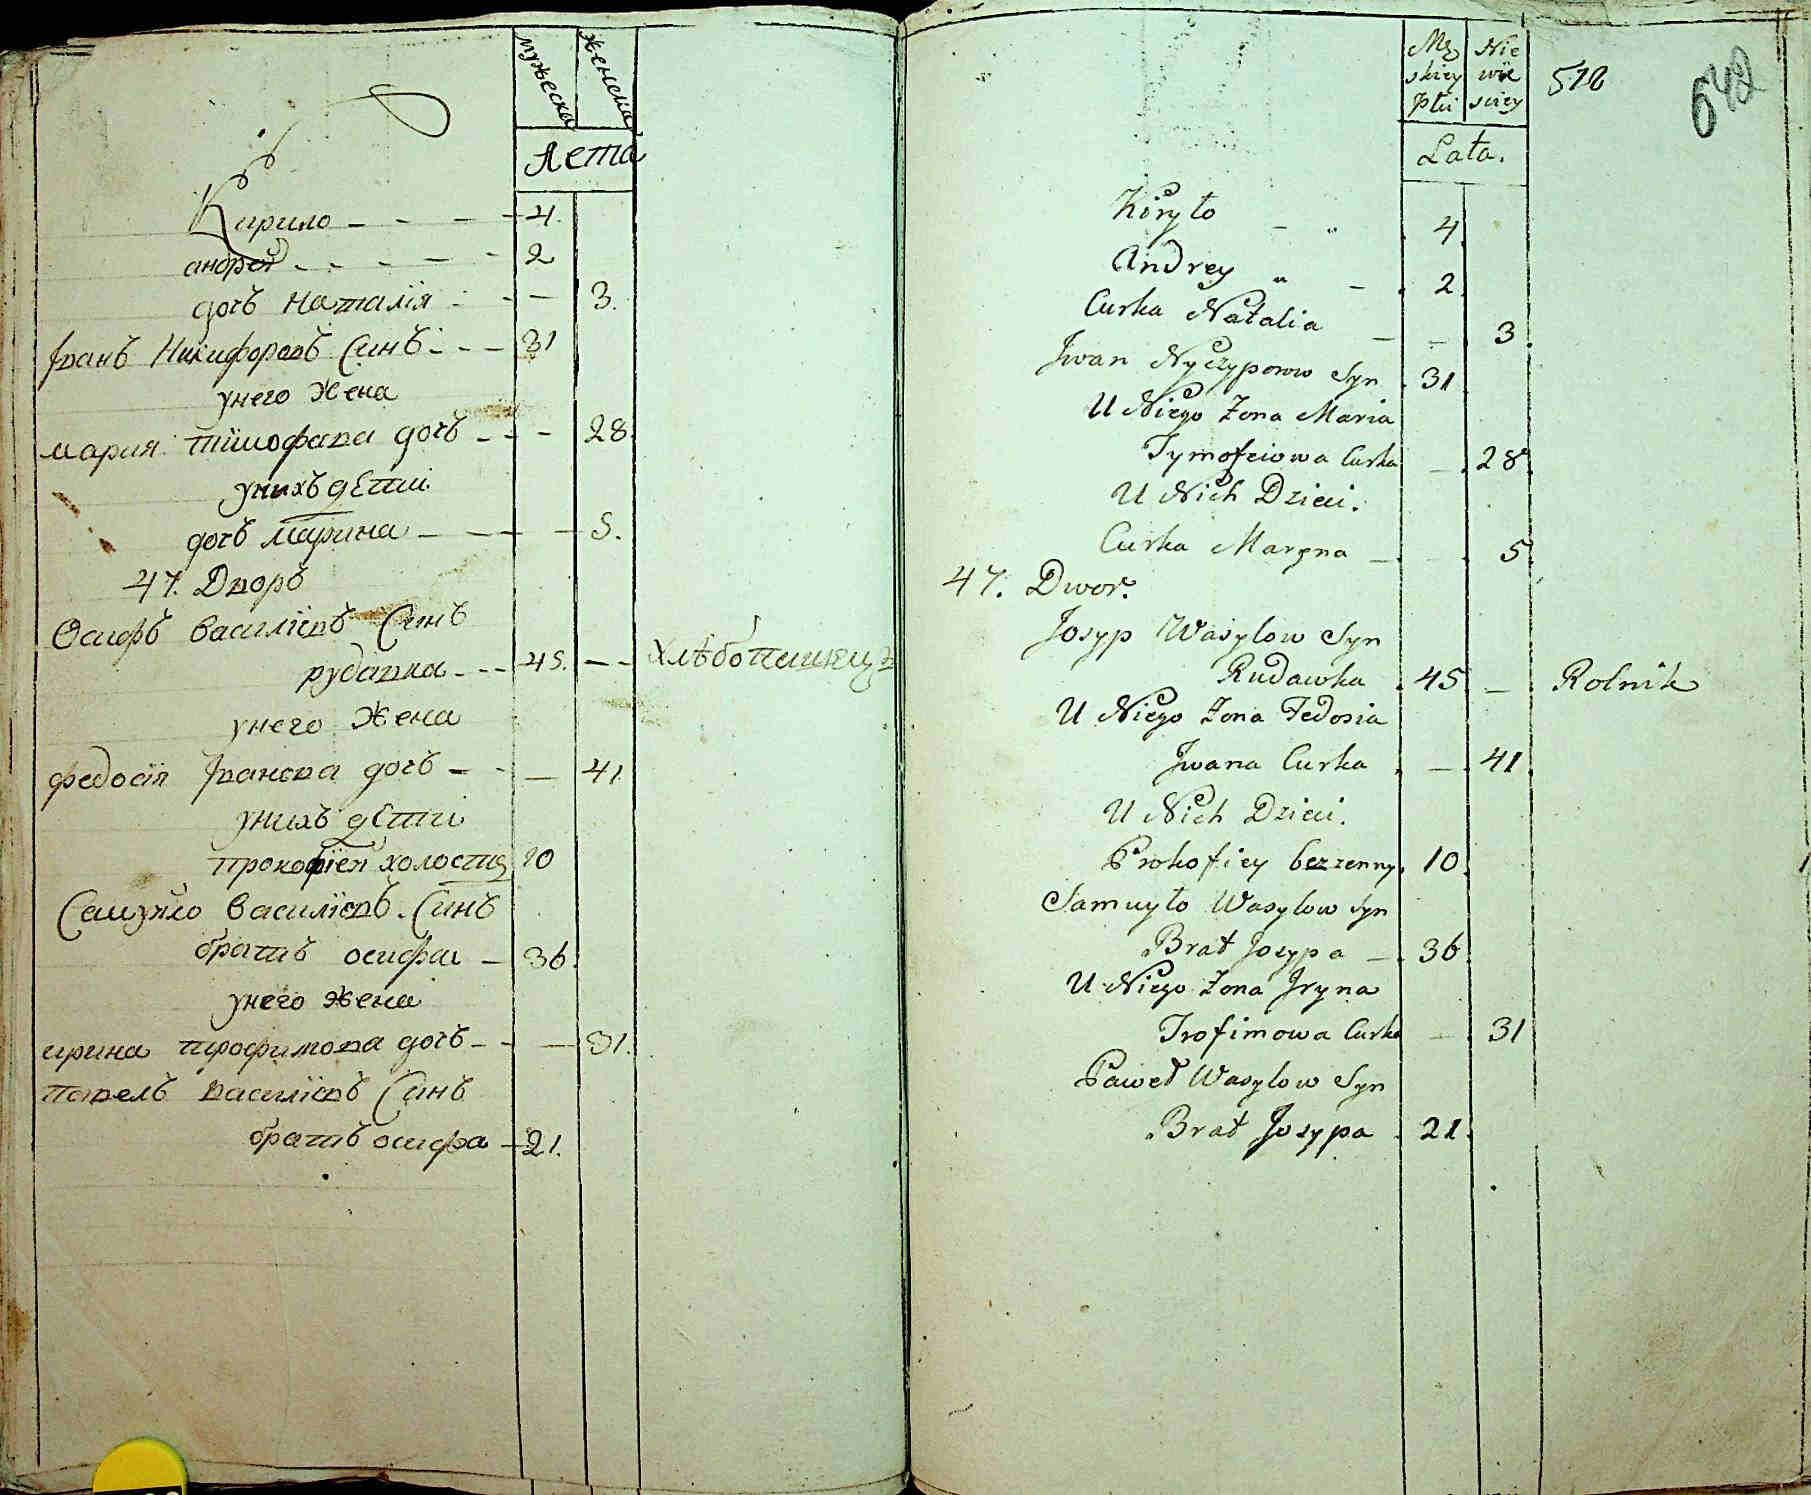 мужеска женска
Лета
Кирило - - - - 4.
андрей - - - - - 2
дочъ Наталія - - - 3.
Іванъ Никифоровъ Синъ - - - 31
унего Жена
мария тимофава дочъ - - - 28.
унихъ дети
дочъ марина - - - - 5.
47. Дворъ
Осифъ василіевъ Синъ
рудавка - - - 45. - - хлѣбопашецъ
унего Жена
федосія Іванова дочъ - - - 41
унихъ дети
прокофіей холостий 10
Самуйло василіевъ Синъ
братъ осифа - 36.
унего жена
ирина трофимова дочъ - - - 31.
павелъ василіевъ Синъ
братъ осифа - 21.
Mę Nie
skiey wie
płci sciey
512
642
Lata.
Kiryło - „ 4
Andrey „ - 2.
Curka Natalia - - 3.
Jwan Nyczyporow Syn 31
U Niego Żona Maria
Tymofeiowa Curka - 28.
U Nich Dzieci.
Curka Maryna - - 5
47. Dwor.
Josyp Wasylow Syn
Rudawka 45 - Rolnik
U Niego Żona Fedosia
Jwana Curka - 41
U Nich Dzieci.
Prokofiey bezzenny 10.
Samuyło Wasylow Syn
Brat Josypa - 36.
U Niego Żona Jryna
Trofimowa Curka - 31
Paweł Wasylow Syn
Brat Josypa 21.